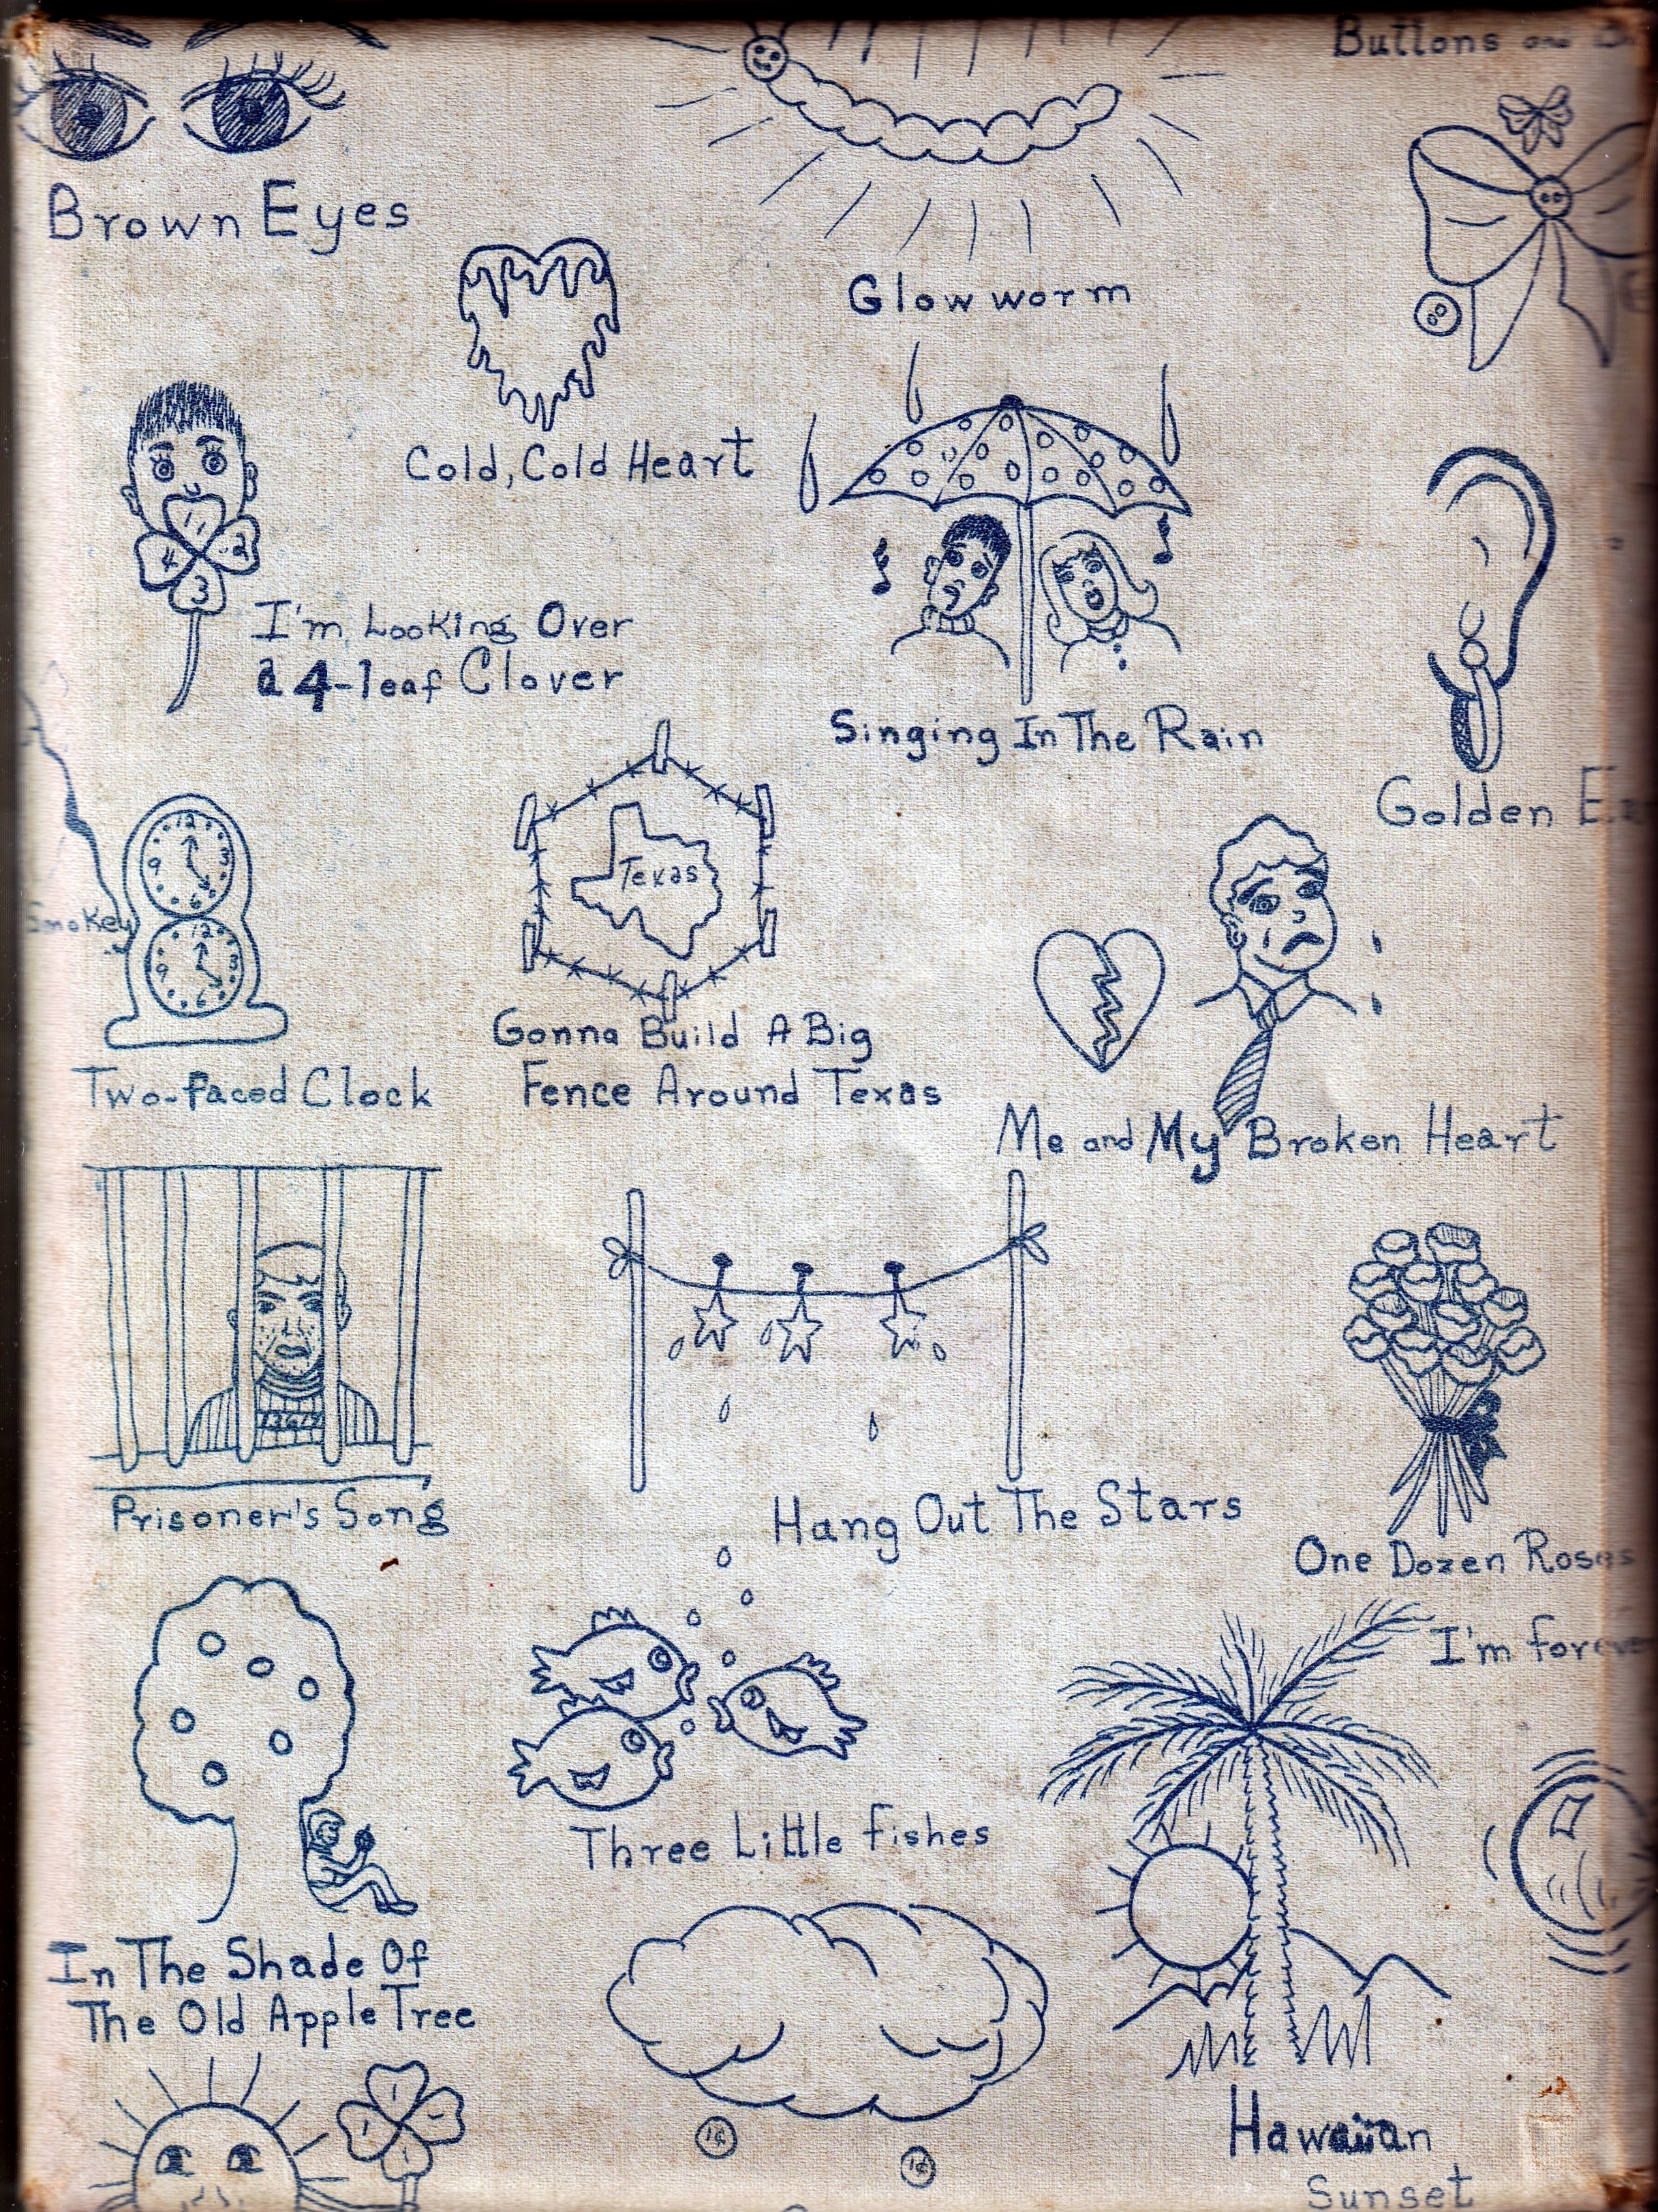 Buttons and
Brown Eyes
Glow worm
Cold, Cold Heart
1
2
3
4
I'm Looking Over
a 4-leaf Clover
Singing In The Rain
Golden
12
3
6
9
Smokey
12
3
6
9
Two-faced Clock
Texas
Gonna Build A Big
Fence Around Texas
Me and My Broken Heart
Prisoner's Song
Hang Out The Stars
One Dozen Roses
I'm forever
In The Shade Of
The Old Apple Tree
Three Little Fishes
Hawaiian
Sunset
1¢
1¢